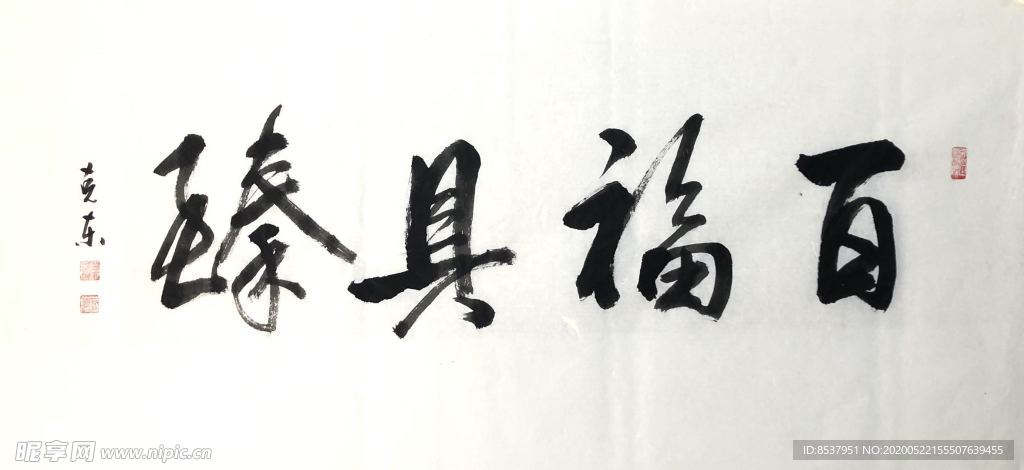 百福具臻
克东
昵享网 www.nipic.cn
ID:8537951 NO:20200522155507639455